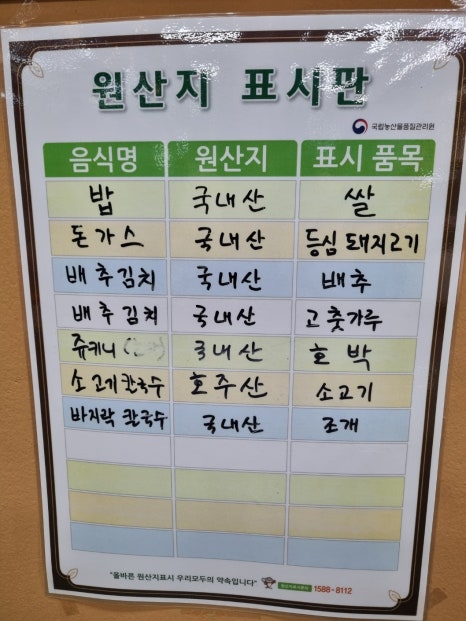 원산지 표시판
국립농산물품질관리원
음식명 원산지 표시 품목
밥 국내산 쌀
돈가스 국내산 등심 돼지고기
배추김치 국내산 배추
배추김치 국내산 고춧가루
쥬키니 국내산 호박
소고기칼국수 호주산 소고기
바지락 칼국수 국내산 조개
"올바른 원산지표시 우리모두의 약속입니다" 1588-8112